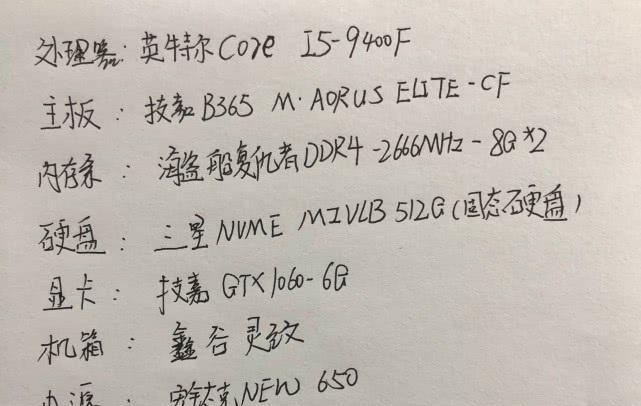 处理器：英特尔Core I5-9400F
主板：技嘉B365 M·AORUS ELITE-CF
内存条：海盗船复仇者DDR4-2666MHz-8G*2
硬盘：三星NVME MZVLB 512G(固态硬盘)
显卡：技嘉GTX1060-6G
机箱：鑫谷灵致
电源：安钛克NEW 650